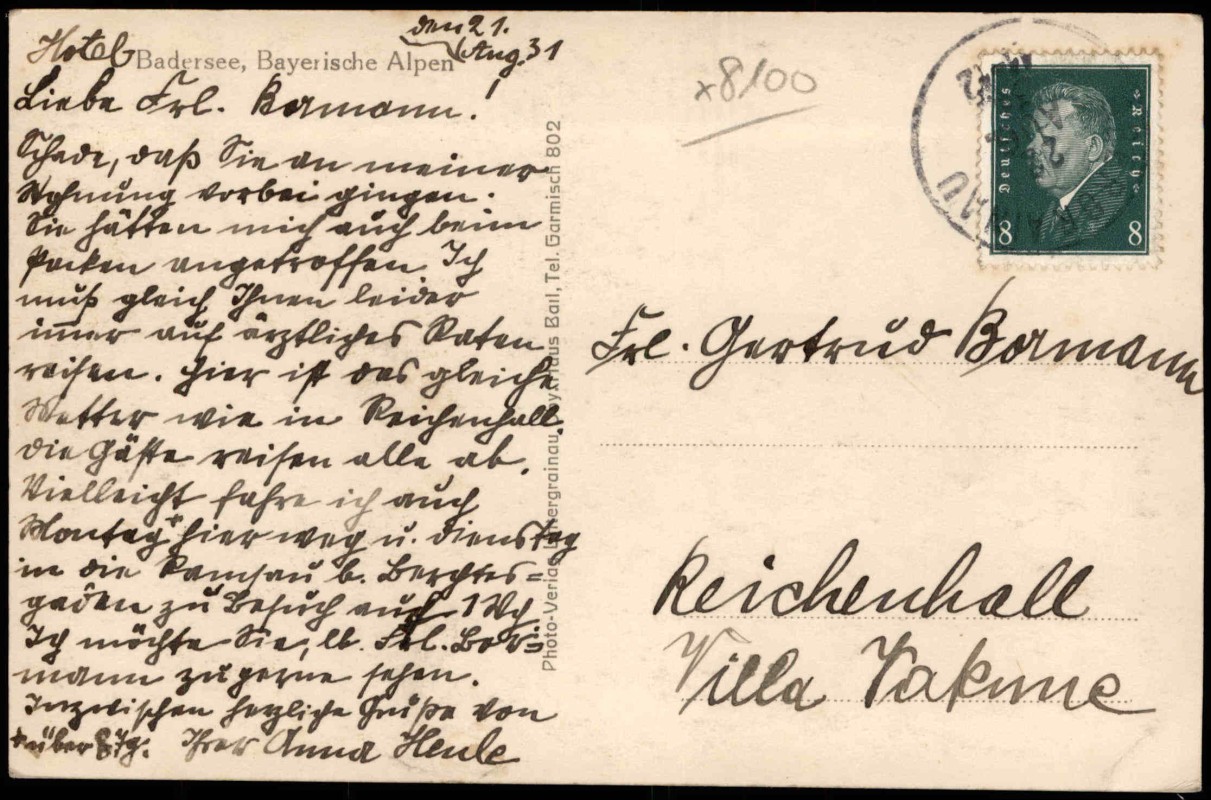 den 21.
Hotel Badersee, Bayerische Alpen Aug. 31
Liebe Frl. Bormann!
Schade, daß Sie an meiner
Wohnung vorbei gingen.
Sie hätten mich auch beim
Packen angetroffen. Ich
muß gleich Ihnen leider
im̅er auf ärztliches Raten
reisen. Hier ist das gleiche
Wetter wie in Reichenhall.
die Gäste reisen alle ab.
Vielleicht fahre ich auch
Montag* hier weg u. dienstag
in die Ramsau b. Berchtes=
gaden zu Besuch auf 1 Wch.
Ich möchte Sie, lb. Frl. Bor=
mann zu gerne sehen.
Inzwischen herzliche Grüße von
*über 8 Tg. Ihrer Anna Henle
Photo-Verlag Untergrainau, Bail, Tel. Garmisch 802
x8/00
Deutsches Reich
8 8
Frl. Gertrud Bormann
Reichenhall
Villa Vakune